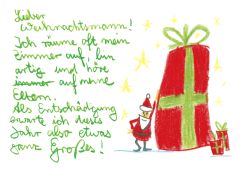 Lieber
Weihnachtsmann!
Ich räume oft mein
Zimmer auf, bin
artig und höre
immer auf meine
Eltern.
Als Entschädigung
erwarte ich dieses
Jahr also etwas
ganz Großes!